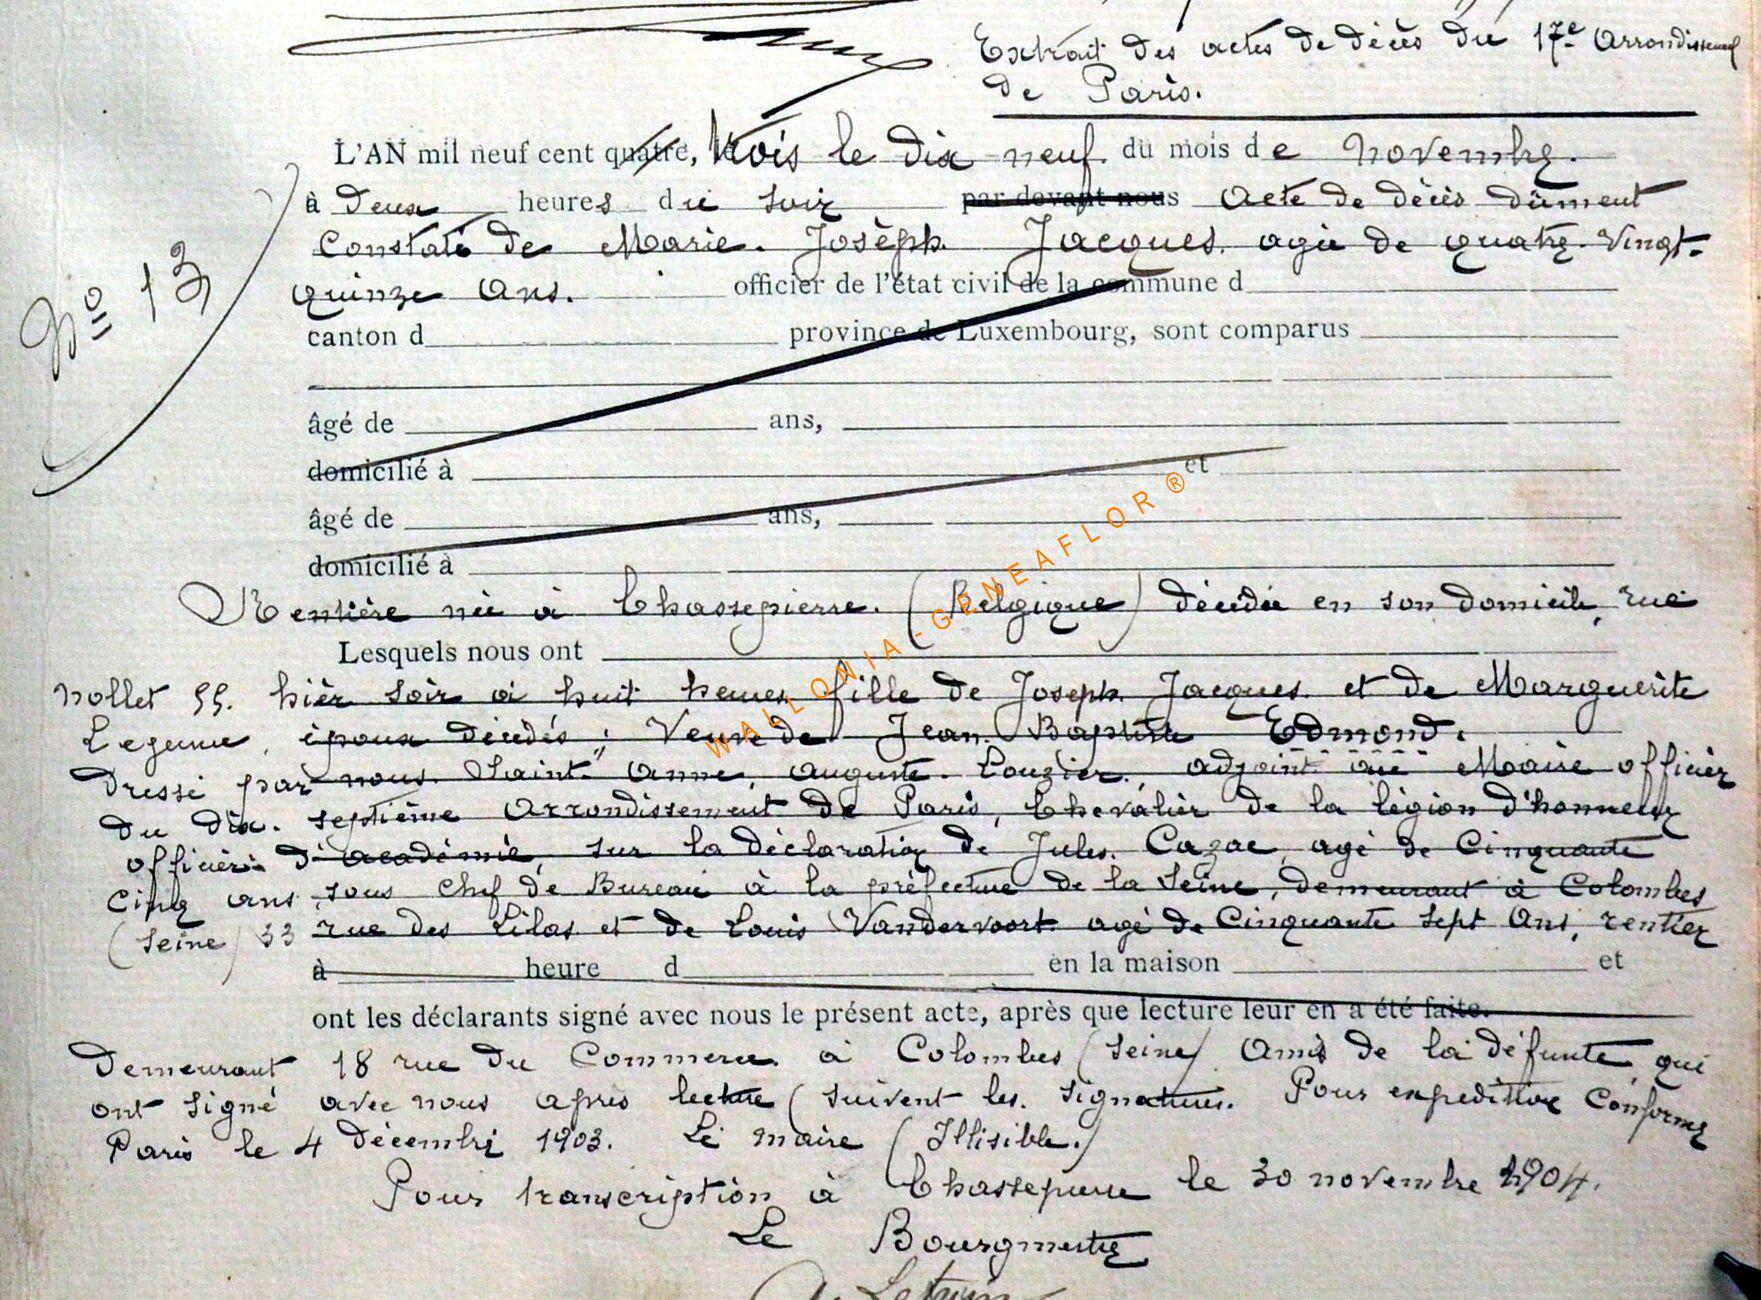 Extrait des actes de décès du 17e Arrondissement
de Paris.
L'AN mil neuf cent quatre, le trois le dix neuf du mois de novembre.
à Deux heures du soir par devant nous Acte de décès dûment
Constaté de Marie. Josèph. Jacques. agée de quatre-Vingt-
quinze Ans. officier de l'état civil de la commune d
N° 13
canton d province de Luxembourg, sont comparus
âgé de ans,
domicilié à et
âgé de ans,
domicilié à
WALLONIA-GENEAFLOR®
Rentière née à Chassepierre. (Belgique) décédée en son domicile, rue
Lesquels nous ont
nollet 55. hièr soir à huit heures fille de Joseph Jacques et de Marguerite
époux décédés; Veuve de Jean. Baptiste Edmond.
Dressé par nous. Saint-Anne, Auguste. adjoint au Maire officièr
du dix. septième Arrondissement de Paris, Chevalièr de la légion d'honneur
officièr d'académie, sur la déclaration de Jules. Cazac, agé de Cinquante
Cinq ans, sous chef de Bureau à la préfecture de la Seine, demeurant à Colombes
(Seine) 33 rue des Lilas et de Louis Vandervoort agé de Cinquante sept Ans, rentier
à heure d en la maison et
ont les déclarants signé avec nous le présent acte, après que lecture leur en a été faite.
Demeurant 18 rue du Commerce à Colombes (Seine) Amis de la défunte, qui
ont signé avec nous après lecture (suivent les signatures. Pour expedition Conforme
Paris le 4 Décembre 1903. Le maire (Illisible.)
Pour transcription à Chassepierre le 30 novembre 1904.
Le Bourgmestre